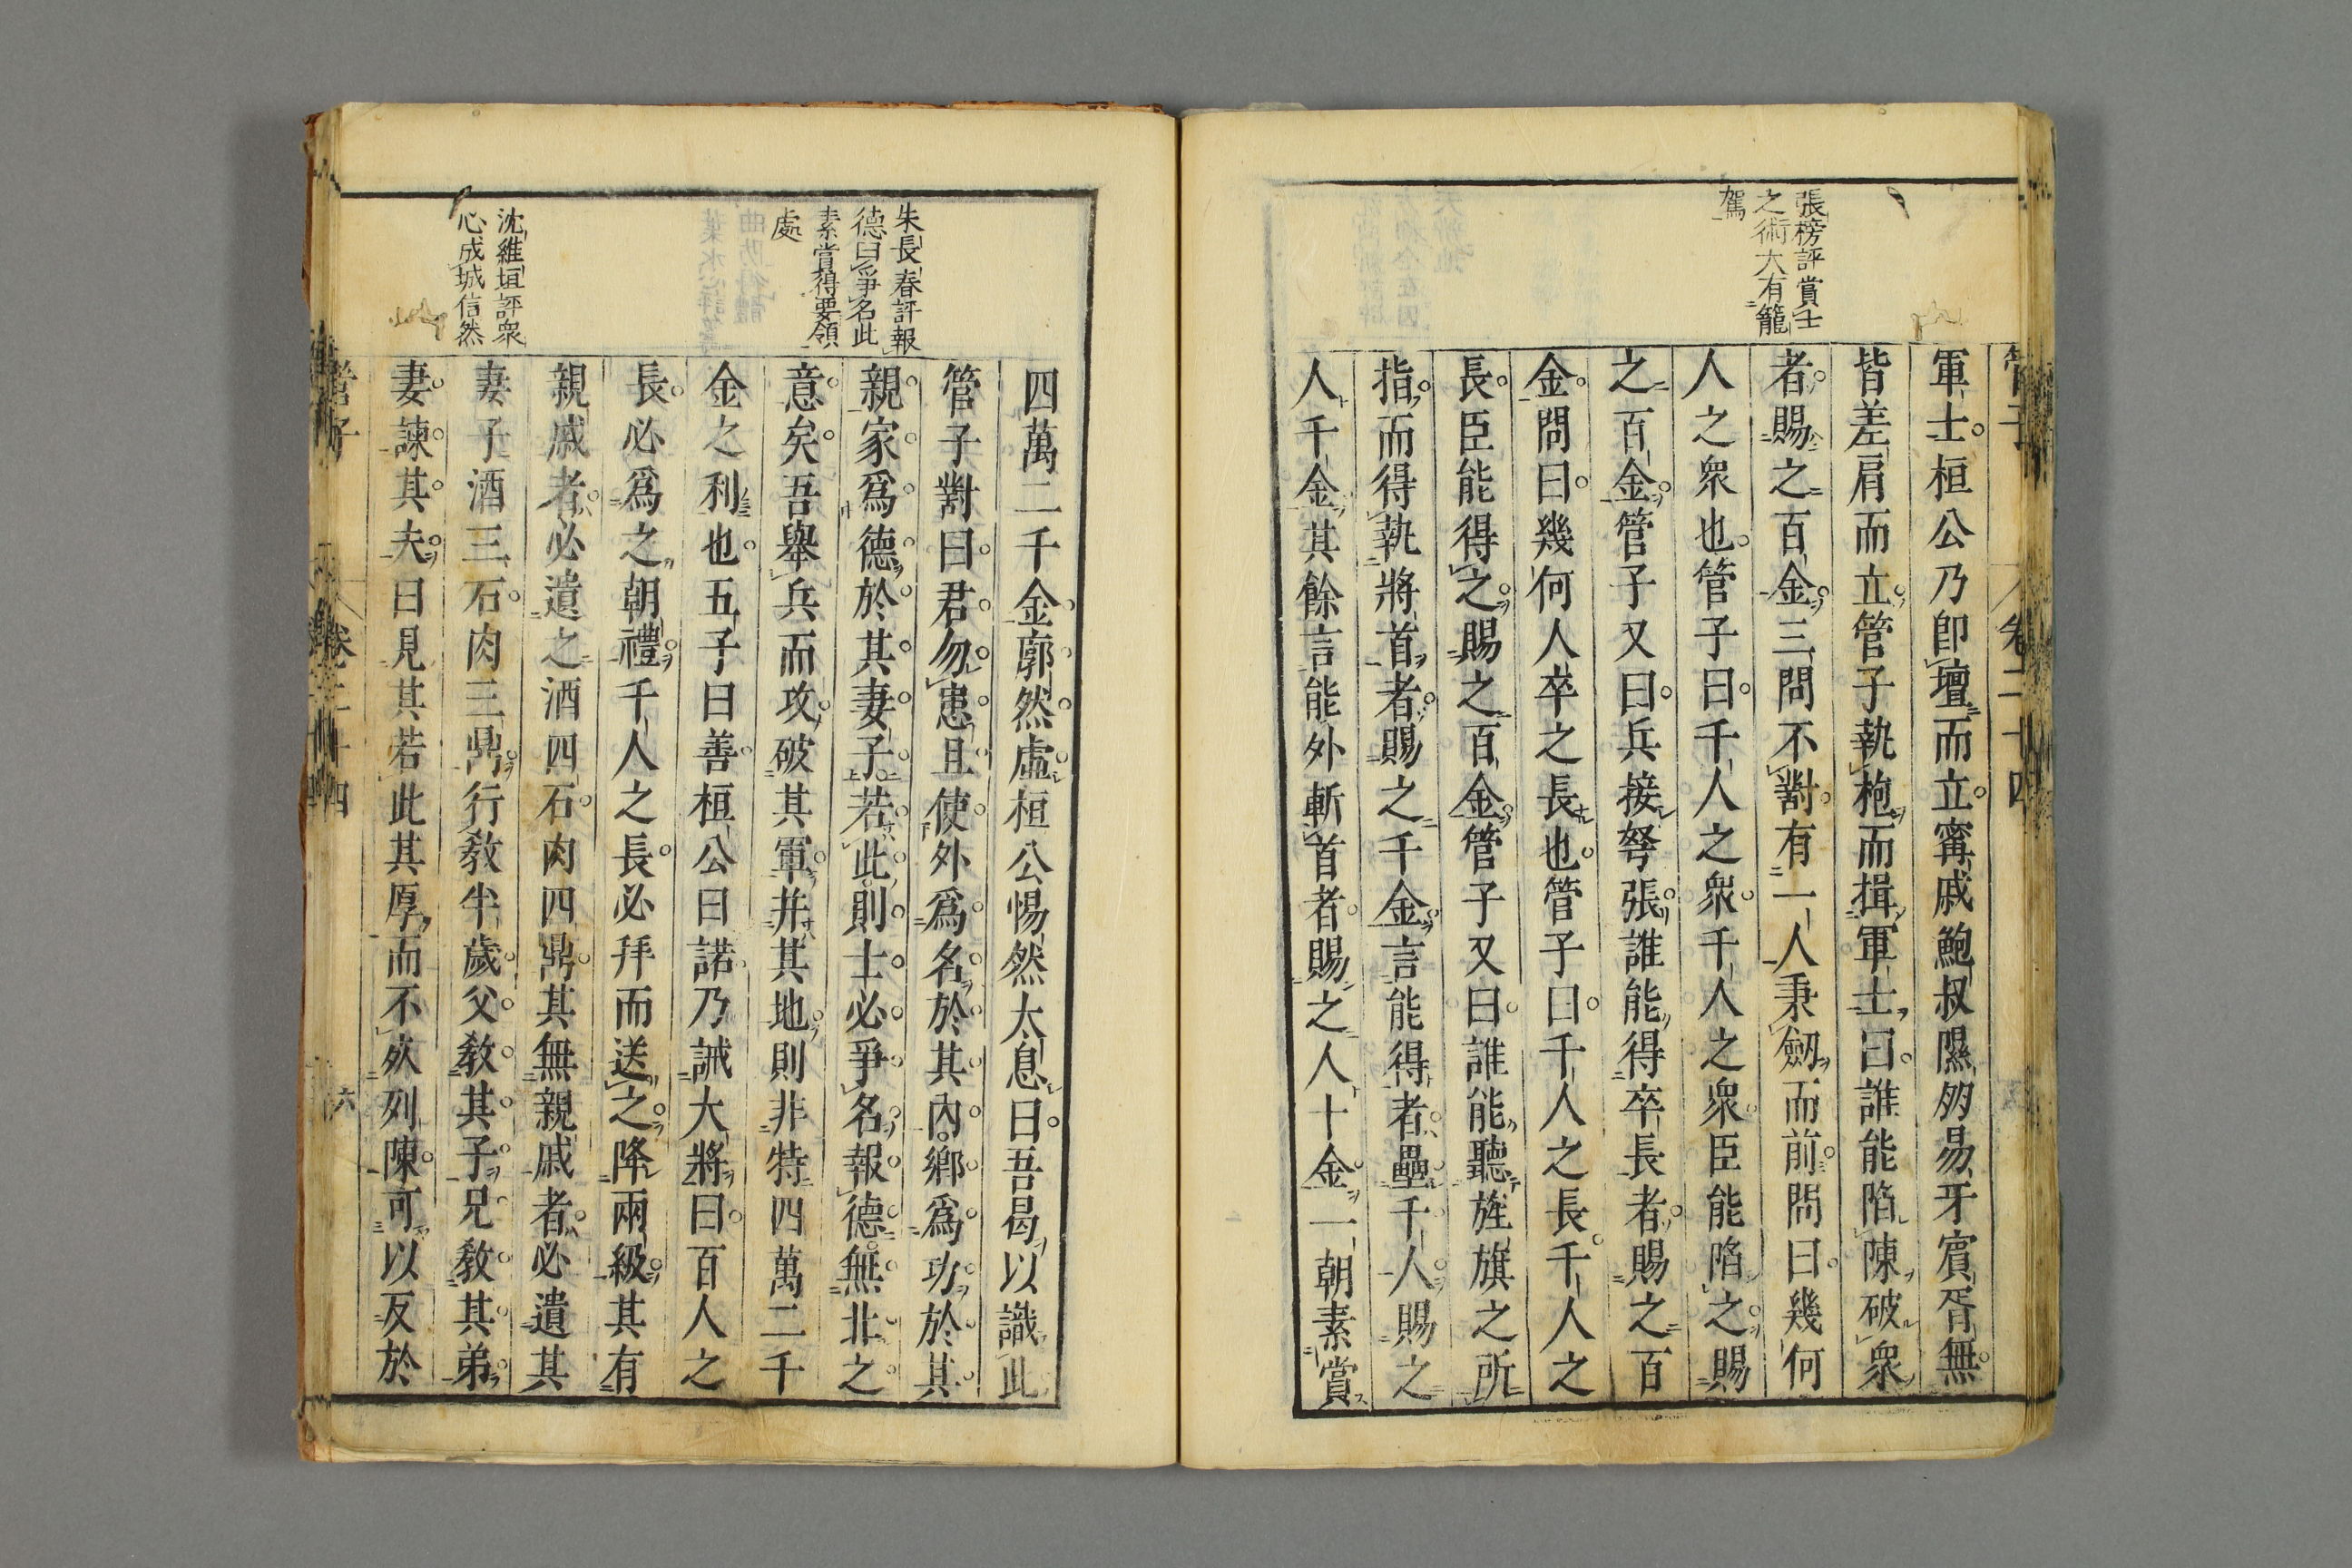 管子
卷二十四
張榜評賞士
之術大有籠
駕
軍士桓公乃卽壇而立甯戚鮑叔隰朋易牙賓胥無
皆差肩而立管子執枹而揖軍士曰誰能陷陳破衆
者賜之百金三問不對有一人秉劒而前問曰幾何
人之衆也管子曰千人之衆千人之衆臣能陷之賜
之百金管子又曰兵接弩張誰能得卒長者賜之百
金問曰幾何人卒之長也管子曰千人之長千人之
長臣能得之賜之百金管子又曰誰能聽旌旗之所
指而得執將首者賜之千金言能得者壘千人賜之
人千金其餘言能外斬首者賜之人十金一朝素賞
朱長春評報
德曰爭名此
素賞得要領
處
沈維垣評衆
心成城信然
四萬二千金廓然虛桓公惕然太息曰吾曷以識此
管子對曰君勿患且使外爲名於其內鄉爲功於其
親家爲德於其妻子若此則士必爭名報德無北之
意矣吾舉兵而攻破其軍并其地則非特四萬二千
金之利也五子曰善桓公曰諾乃誡大將曰百人之
長必爲之朝禮千人之長必拜而送之降兩級其有
親戚者必遺之酒四石肉四鼎其無親戚者必遺其
妻子酒三石肉三鼎行敎半歲父敎其子兄敎其弟
妻諫其夫曰見其若此其厚而不死列陳可以反於
管子
卷二十四
六